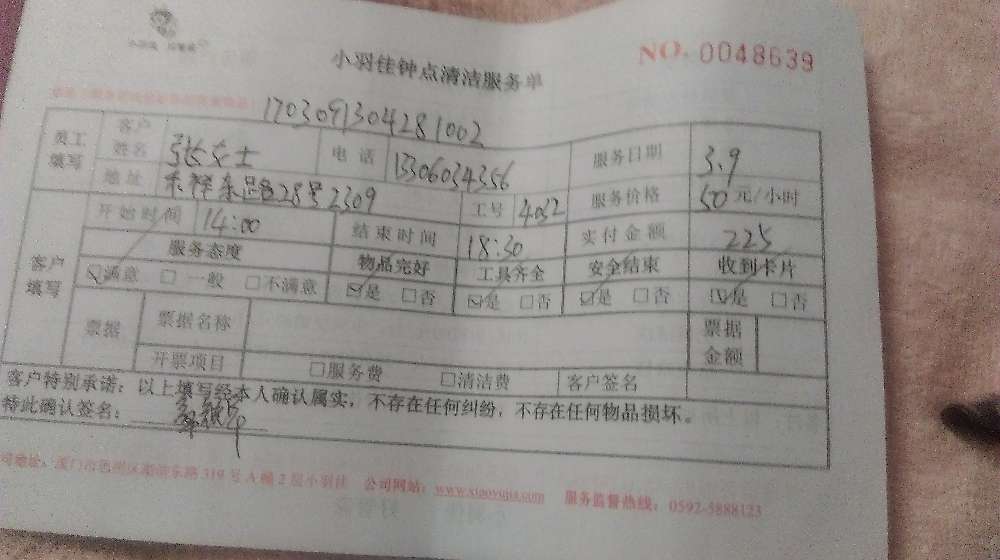 小羽佳钟点清洁服务单
NO. 0048639
1703091304281002
员工填写 客户姓名 张女士 电话 15306034356 服务日期 3.9
地址 28号2309 工号 4032 服务价格 50元/小时
客户填写 开始时间 14:00 结束时间 18:30 实付金额 225
服务态度 物品完好 工具齐全 安全结束 收到卡片
☑满意 □一般 □不满意 ☑是 □否 ☑是 □否 ☑是 □否 ☑是 □否
票据 票据名称 票据金额
开票项目 □服务费 □清洁费 客户签名
客户特别承诺：以上填写经本人确认属实，不存在任何纠纷，不存在任何物品损坏。
特此确认签名：
司地址：厦门市思明区 东路319号A幢2层小羽佳 公司网站：www.xiaoyujia.com 服务监督热线：0592-5888123